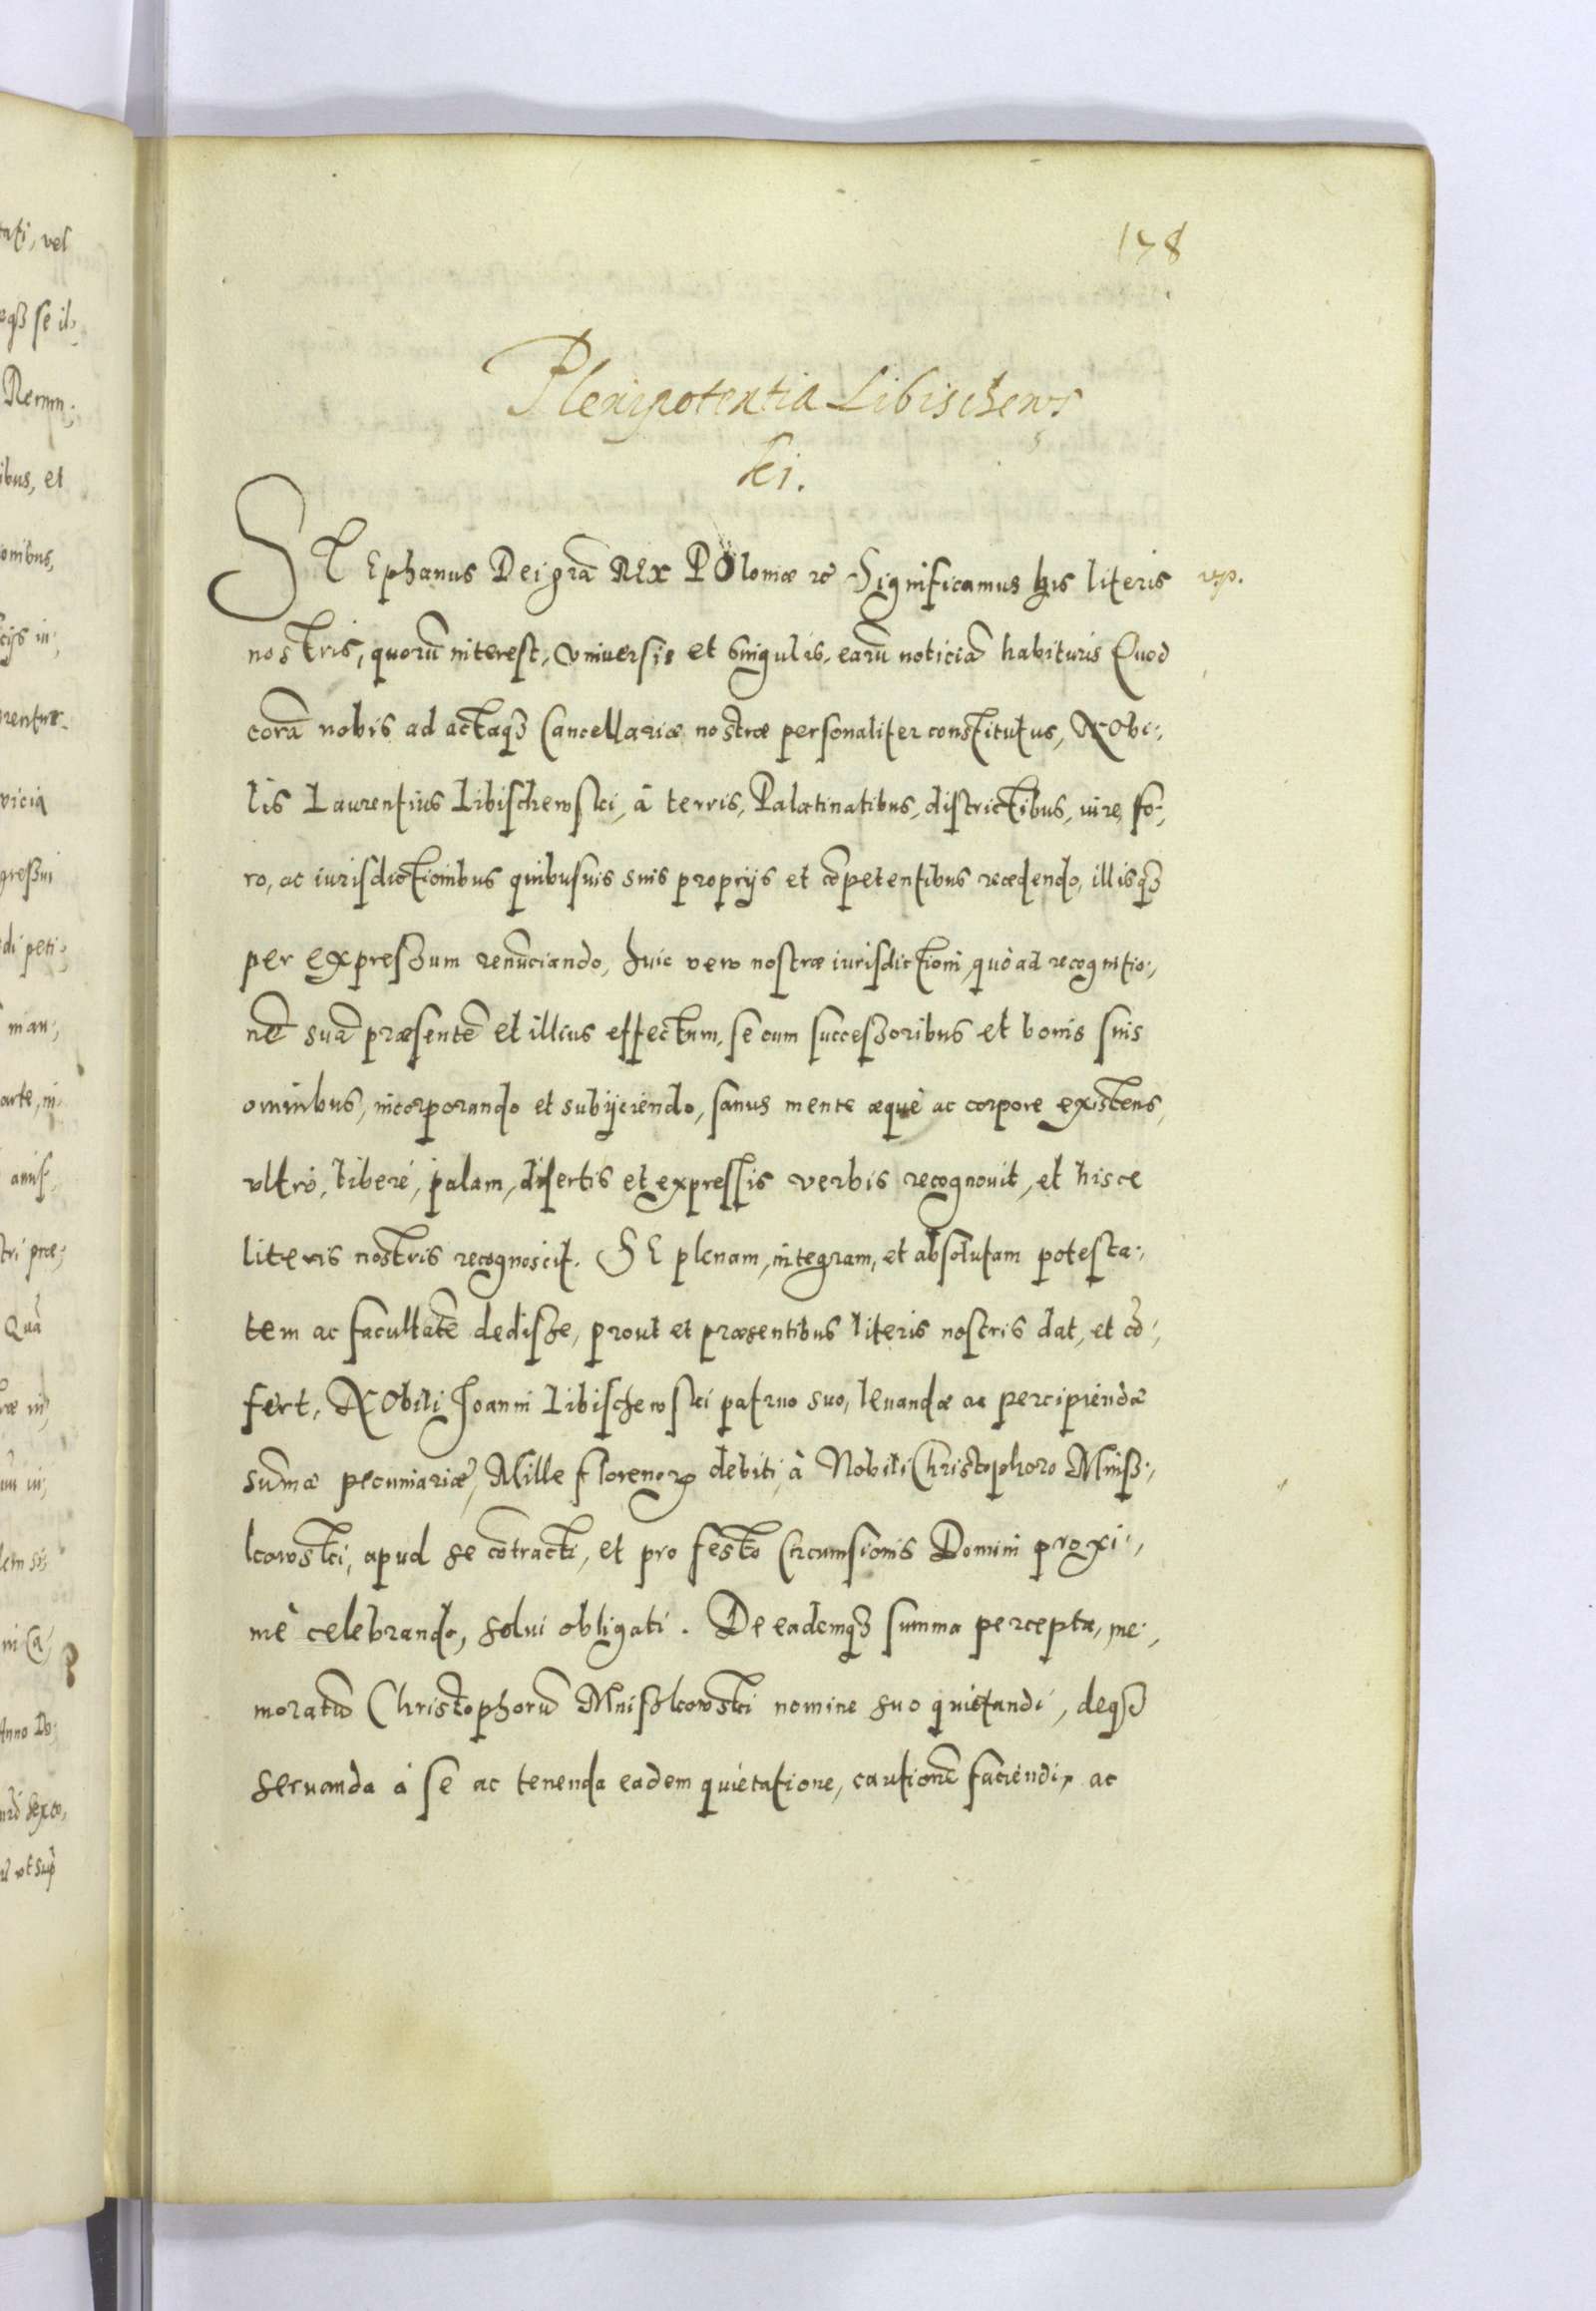 178
Plenipotentia Libischews
ki.
STEphanus Dei grã REx POloniæ rc̃ Significamus his literis
vp.
nostris, quorũ interest, vniuersis et singulis, earũ noticiã habituris Quod
corã nobis ad actaqȝ Cancellariæ nostræ personaliter constitutus, NObi:,
lis Laurentius Libischewski, à terris, Palatinatibus, districtibus, iure, fo:,
ro, ac iurisdictionibus quibusuis suis proprijs et cõpetentibus recedendo, illisqȝ
per expreszum renũciando, huic vero nostræ iurisdictioni, quò ad recognitio:,
nẽ suã præsentẽ et illius effectum, se cum succeszoribus et bonis suis
omnibus, incorporando et subijciendo, sanus mente æquè ac corpore existens,
vltrò, liberè, palam, disertis et expressis verbis recognouit, et hisce
literis nostris recognoscit. SE plenam, integram, et absolutam potesta:,
tem ac facultatẽ dedisze, prout et præsentibus literis nostris dat, et cõ:,
fert, NObili Joanni Libischewski patruo suo, leuandæ ac percipiendæ
sum̃æ pecuniariæ, Mille florenorꝝ debiti, à Nobili Christophoro Mnisz:,
kowski, apud se cõtracti, et pro festo Circumsionis Domini proxi:,
mè celebrando, solui obligati. De eademqȝ summa percepta, me:,
moratũ Christophorũ Mniszkowski nomine suo quietandi, deqȝ
seruanda à se ac tenenda eadem quietatione, cautionẽ faciendi, ac